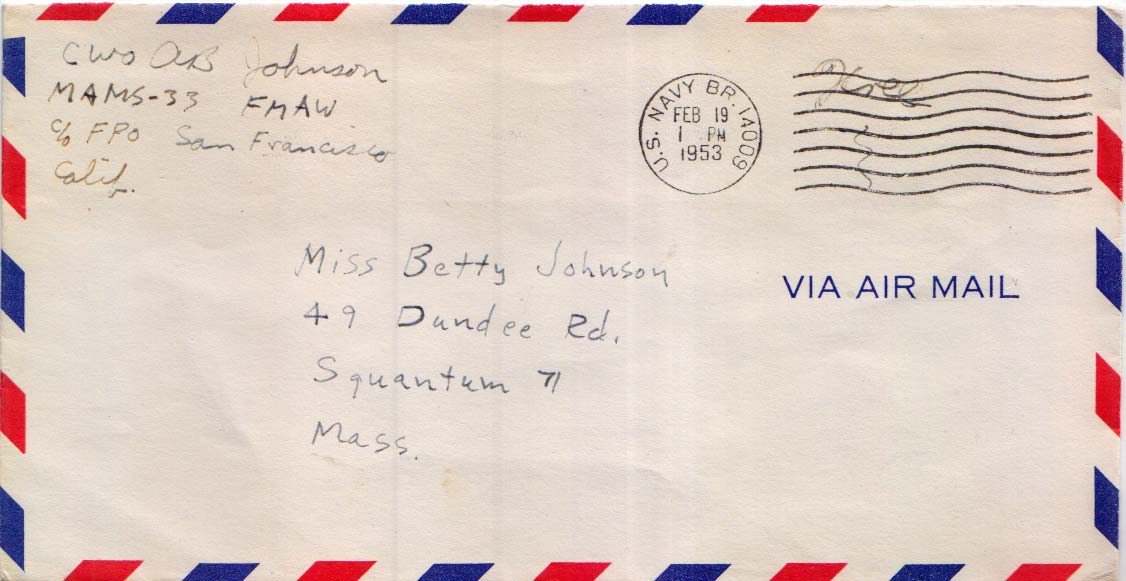 CWO AB Johnson
MAMS-33 FMAW
c/o FPO San Francisco
Calif.
U.S. NAVY BR. 14009
FEB 19
1 PM
1953
Free
Miss Betty Johnson
49 Dundee Rd.
Squantum 71
Mass.
VIA AIR MAIL